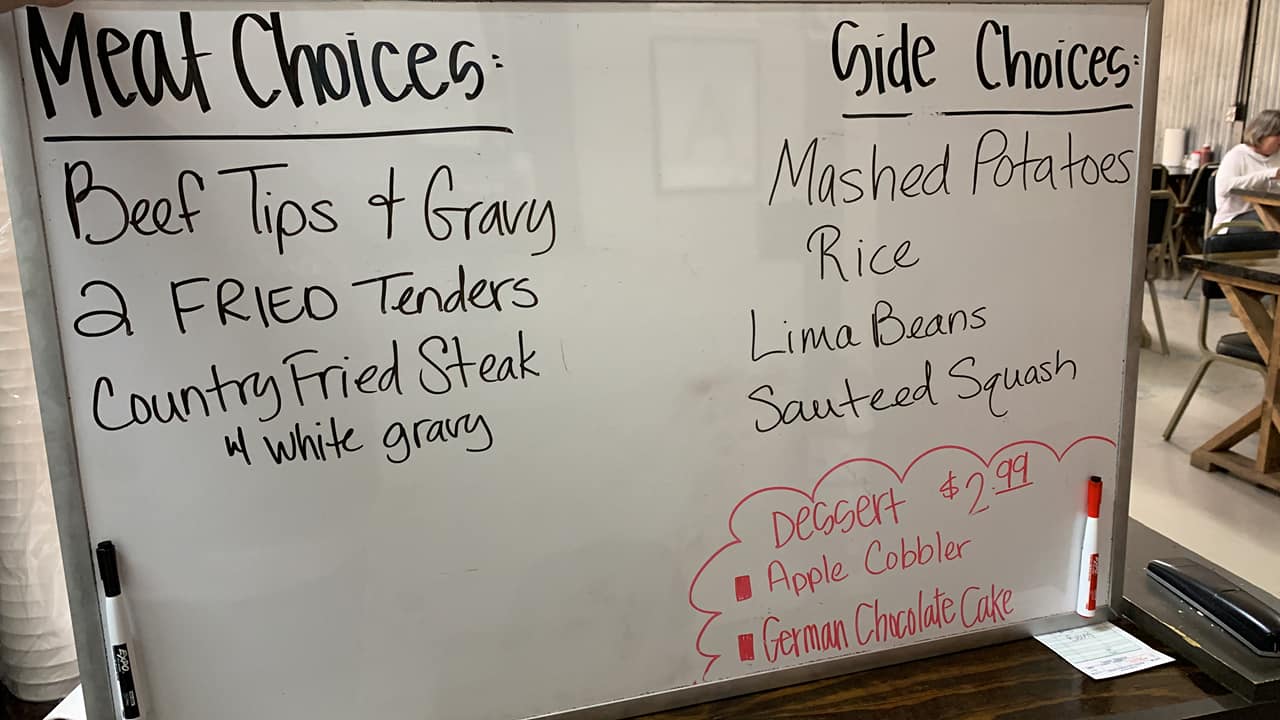 Meat Choices:
Beef Tips & Gravy
2 FRIED Tenders
Country Fried Steak
w/ white gravy
Side Choices:
Mashed Potatoes
Rice
Lima Beans
Sauteed Squash
Dessert $2.99
Apple Cobbler
German Chocolate Cake
EXPO